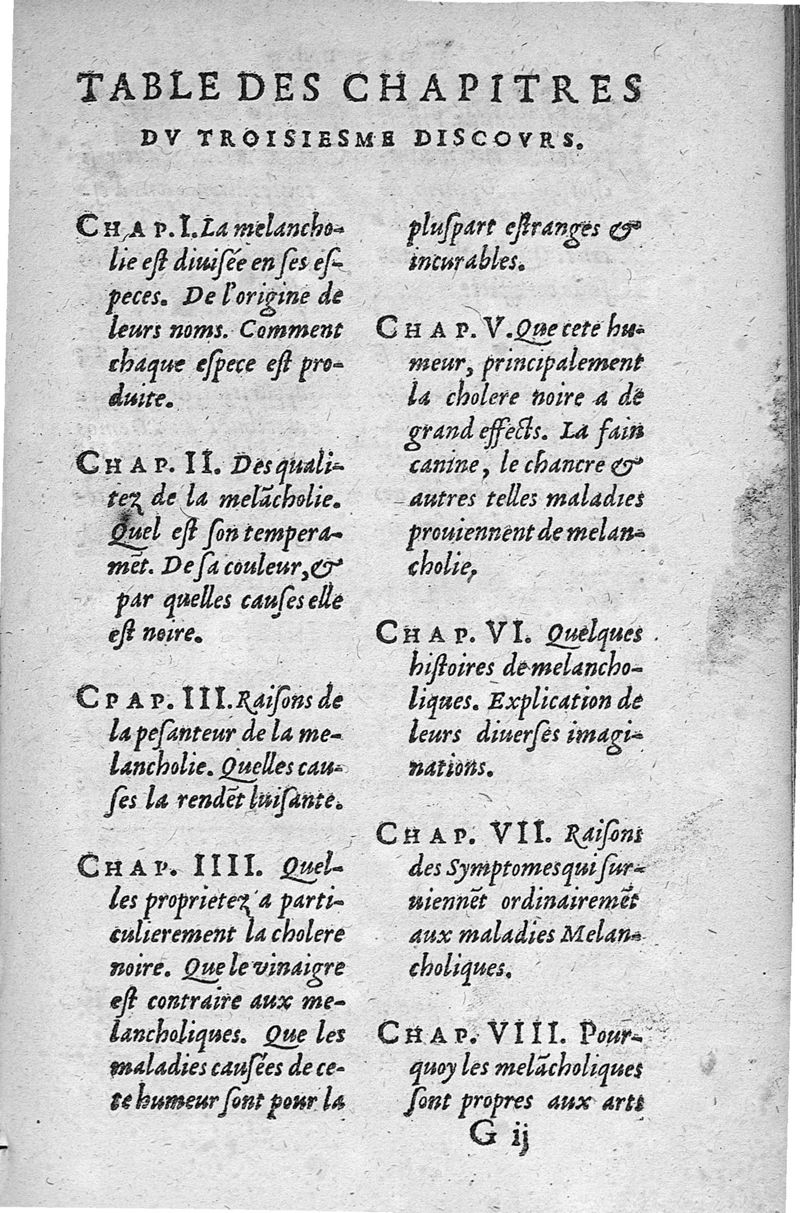 TABLE DES CHAPITRES
DV TROISIESME DISCOVRS.
CHAP. I. La melancho-
lie eſt diuiſée en ſes eſ-
peces. De l'origine de
leurs noms. Comment
chaque eſpece eſt pro-
duite.
CHAP. II. Des quali-
tez de la melãcholie.
Quel eſt ſon tempera-
mẽt. De ſa couleur, &
par quelles cauſes elle
eſt noire.
CPAP. III. Raiſons de
la peſanteur de la me-
lancholie. Quelles cau-
ſes la rendẽt luiſante.
CHAP. IIII. Quel-
les proprietez a parti-
culierement la cholere
noire. Que le vinaigre
eſt contraire aux me-
lancholiques. Que les
maladies cauſées de ce-
te humeur ſont pour la
pluſpart eſtranges &
incurables.
CHAP. V. Que cete hu-
meur, principalement
la cholere noire a de
grand effects. La fain
canine, le chancre &
autres telles maladies
prouiennent de melan-
cholie,
CHAP. VI. Quelques
hiſtoires de melancho-
liques. Explication de
leurs diuerſes imagi-
nations.
CHAP. VII. Raiſons
des Symptomes qui ſur-
uiennẽt ordinairemẽt
aux maladies Melan-
choliques.
CHAP. VIII. Pour-
quoy les melãcholiques
ſont propres aux arts
G ij